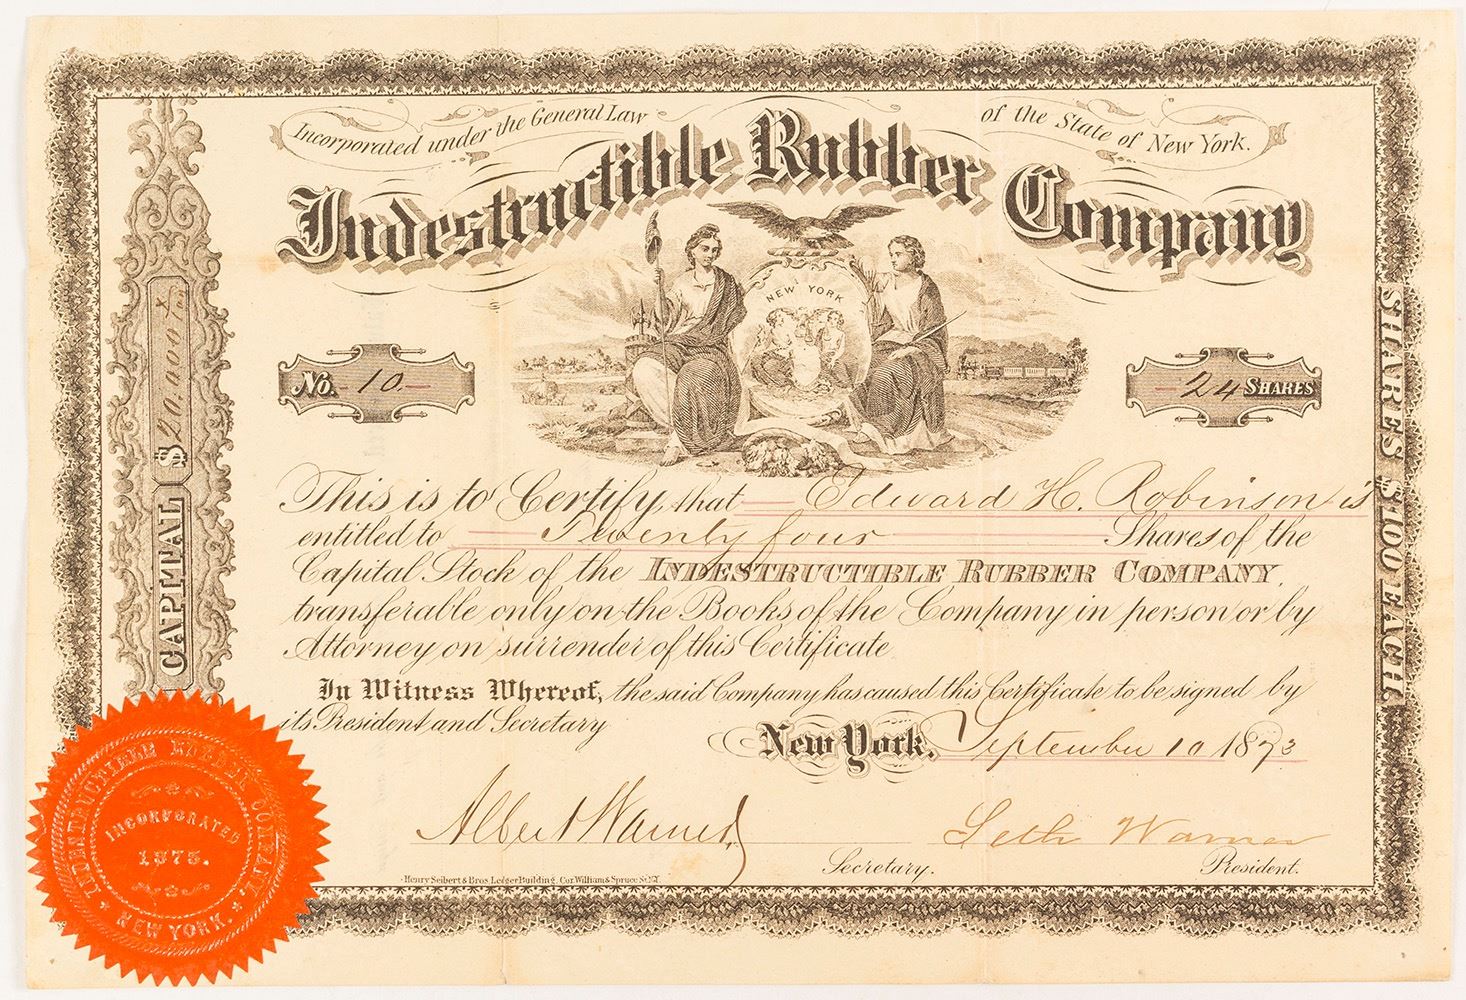 Incorporated under the General Law of the State of New York.
Indestructible Rubber Company
NEW YORK
No. 10
24 SHARES
CAPITAL $ 20.000
SHARES $100 EACH.
This is to Certify that Edward H. Robinson is
entitled to Twenty four Shares of the
Capital Stock of the INDESTRUCTIBLE RUBBER COMPANY,
transferable only on the Books of the Company in person or by
Attorney on surrender of this Certificate.
In Witness Whereof, the said Company has caused this Certificate to be signed by
its President and Secretary
New York, September 10 1873
Albert Warner
Secretary.
Seth Warner
President.
Henry Seibert & Bros. Ledger Building, Cor. William & Spruce St. N.Y.
INDESTRUCTIBLE RUBBER COMPANY,
INCORPORATED
1873.
NEW YORK.